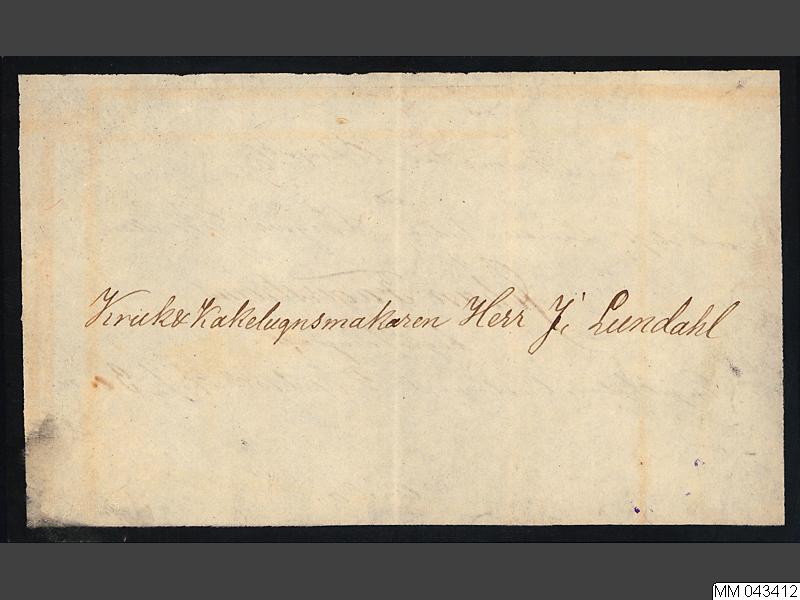 Kruk & Kakelugnsmakaren Herr J. Lundahl
MM 043412